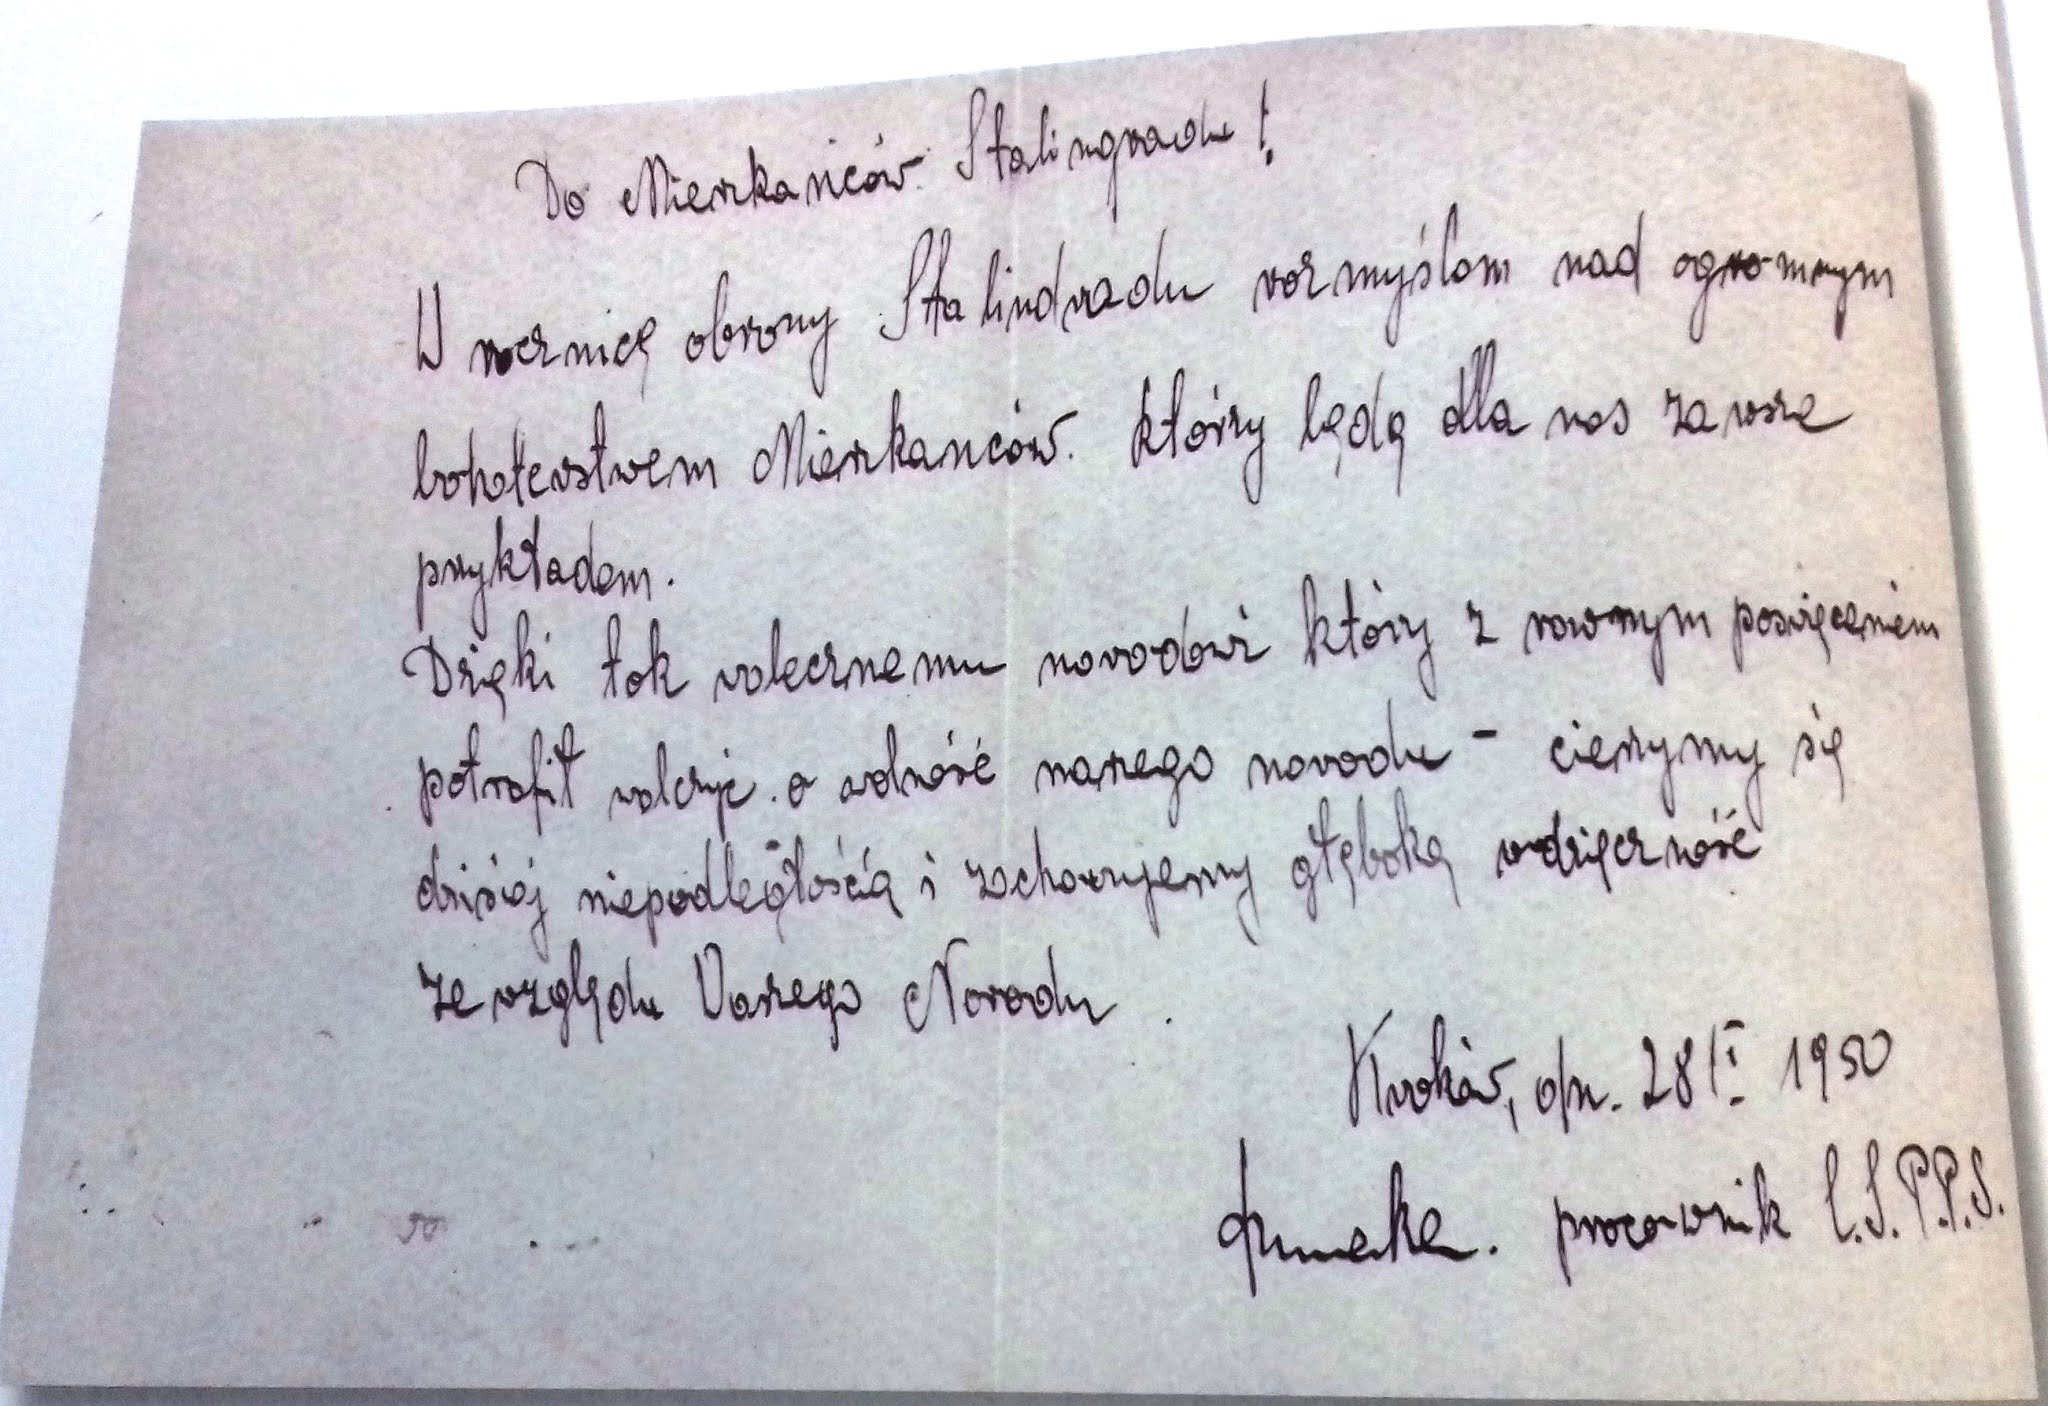 Do Mieszkańców Stalingradu!
W rocznicę obrony Stalindradu rozmyślam nad ogromnym
bohaterstwem Mieszkańców. którzy będą dla nas zawsze
przykładem.
Dzięki tak walecznemu narodowi który z rownym poswięceniem
potrafił walczyc o wolność naszego narodu - cieszymy się
dzisiaj niepodległością i zachowujemy głęboką wdzięczność
ze względu Waszego Narodu.
Kraków, dn. 28 II 1950
pracownik C.S.P.P.S.